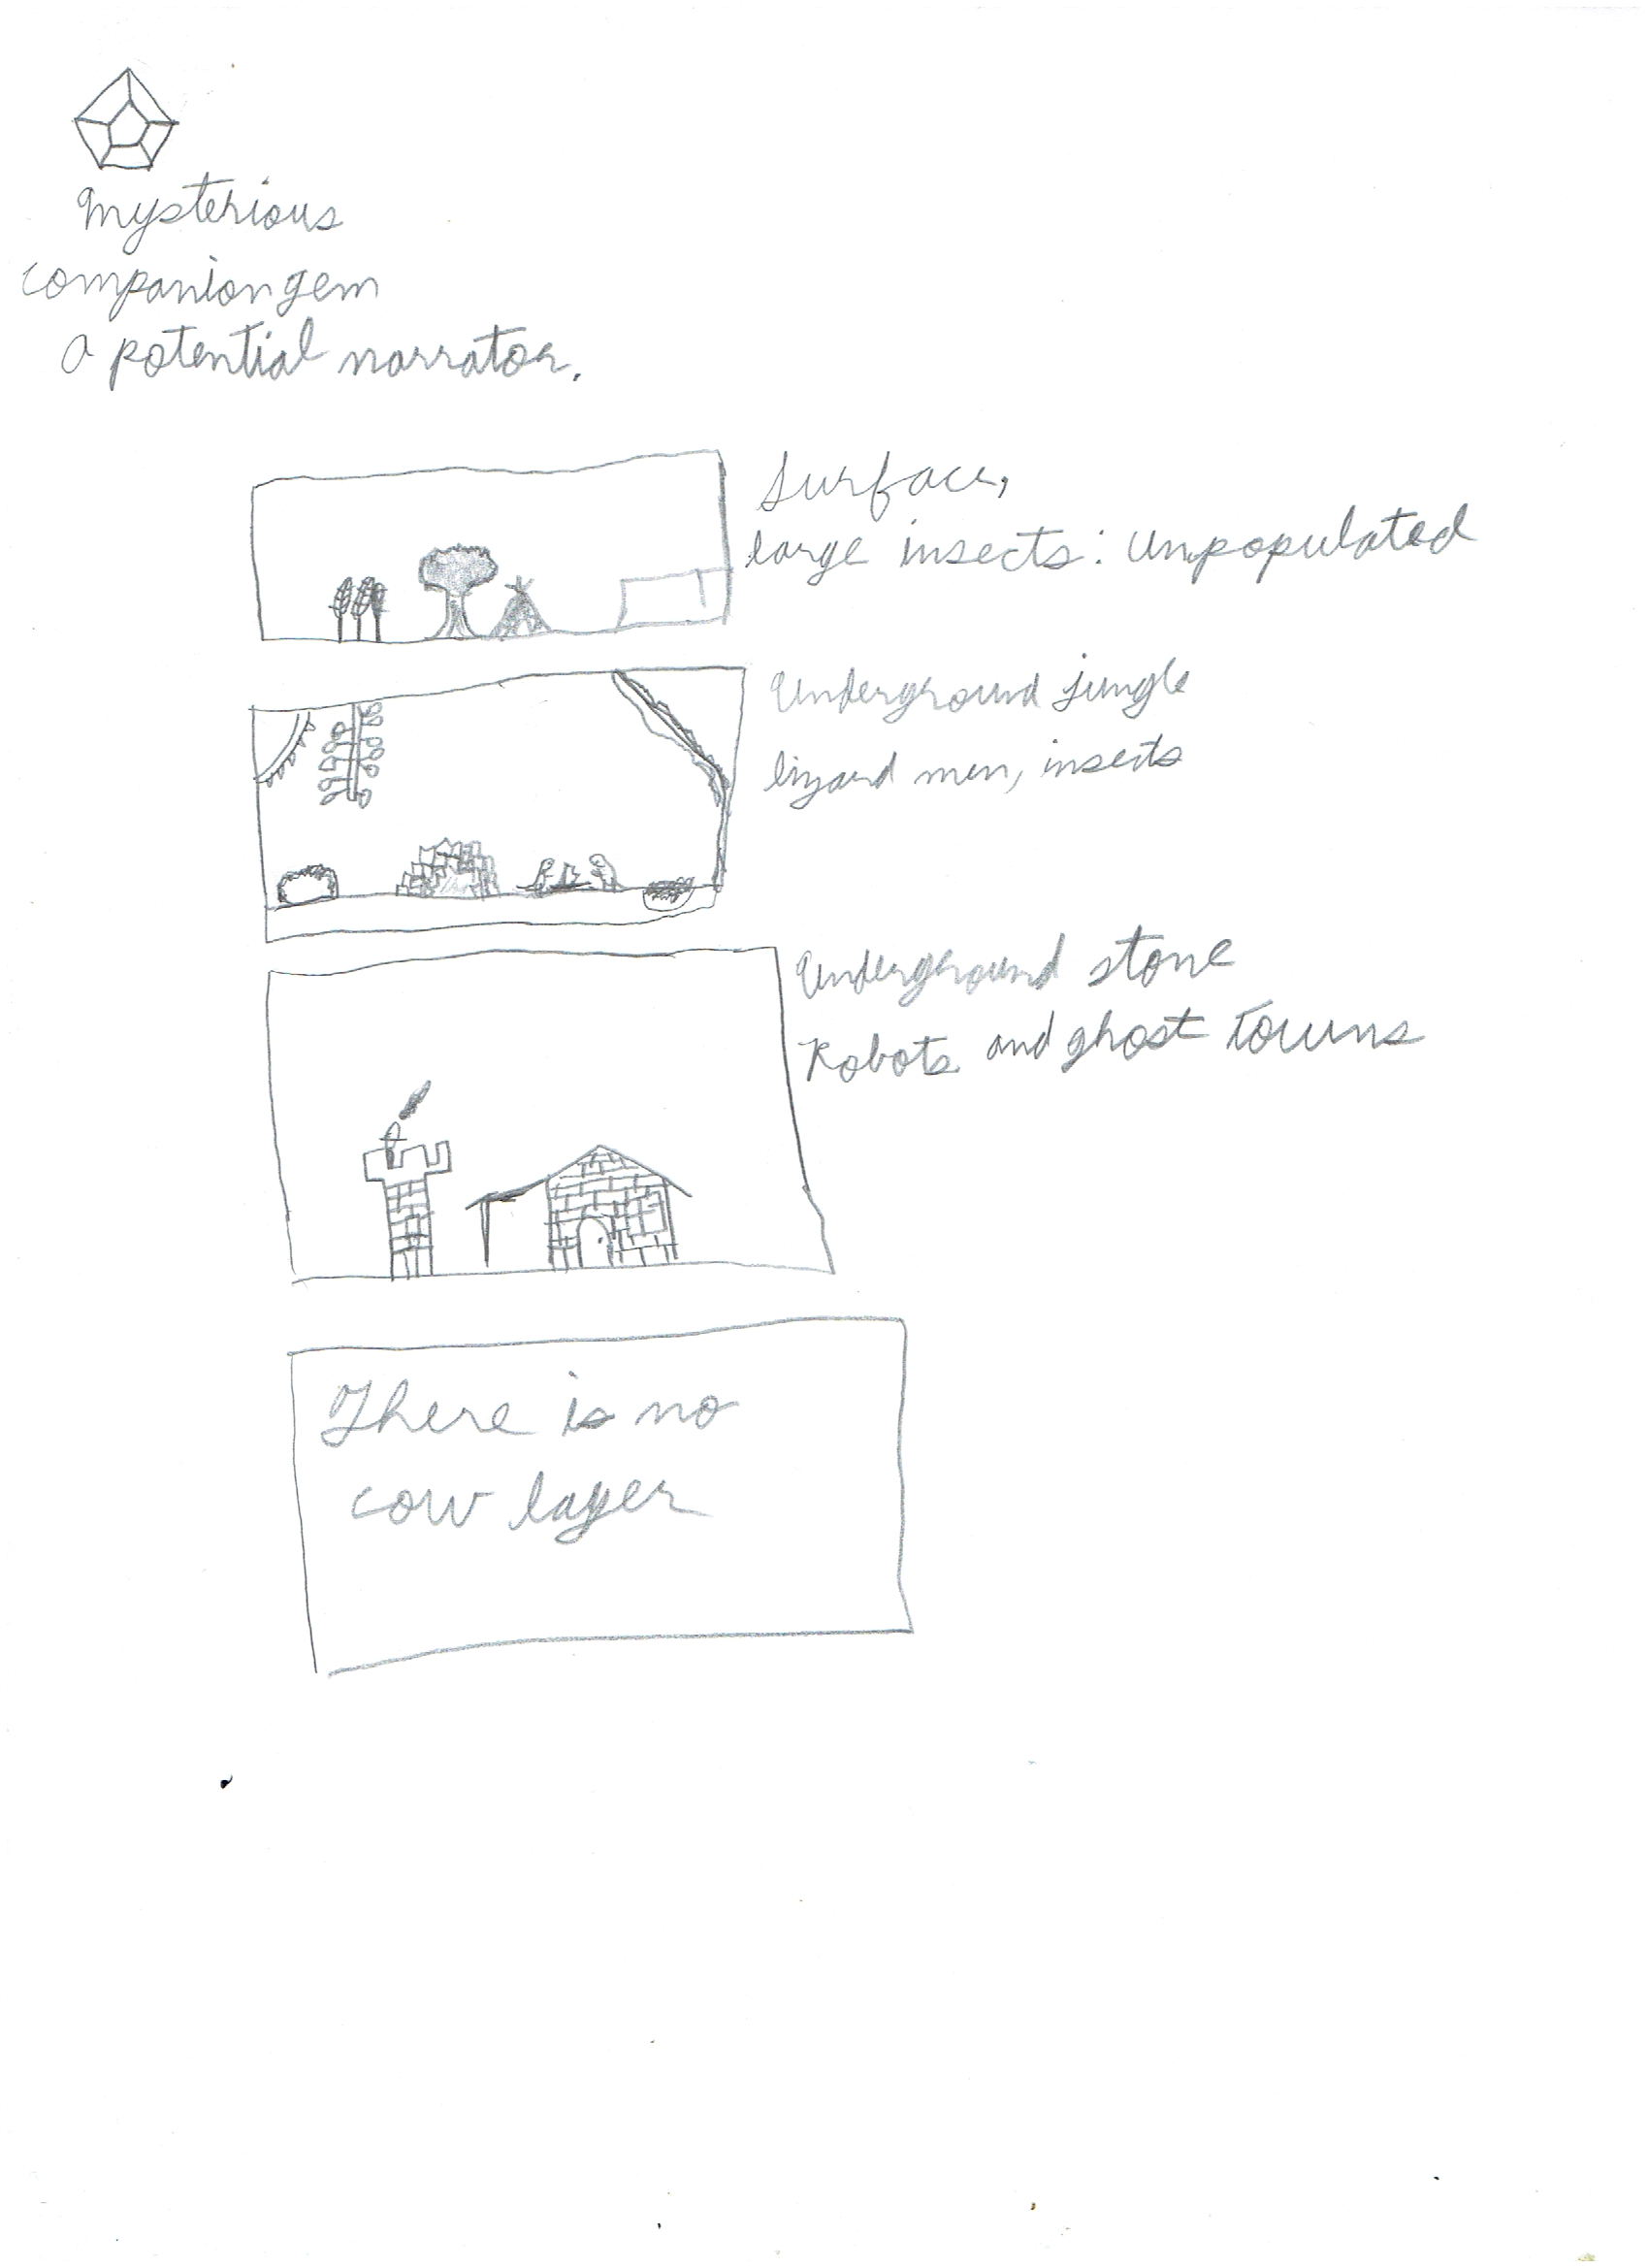 Mysterious
companion gem
a potential narrator.
Surface,
large insects: Unpopulated
Underground jungle
lizard men, insects
Underground stone
Robots and ghost Towns
There is no
cow layer